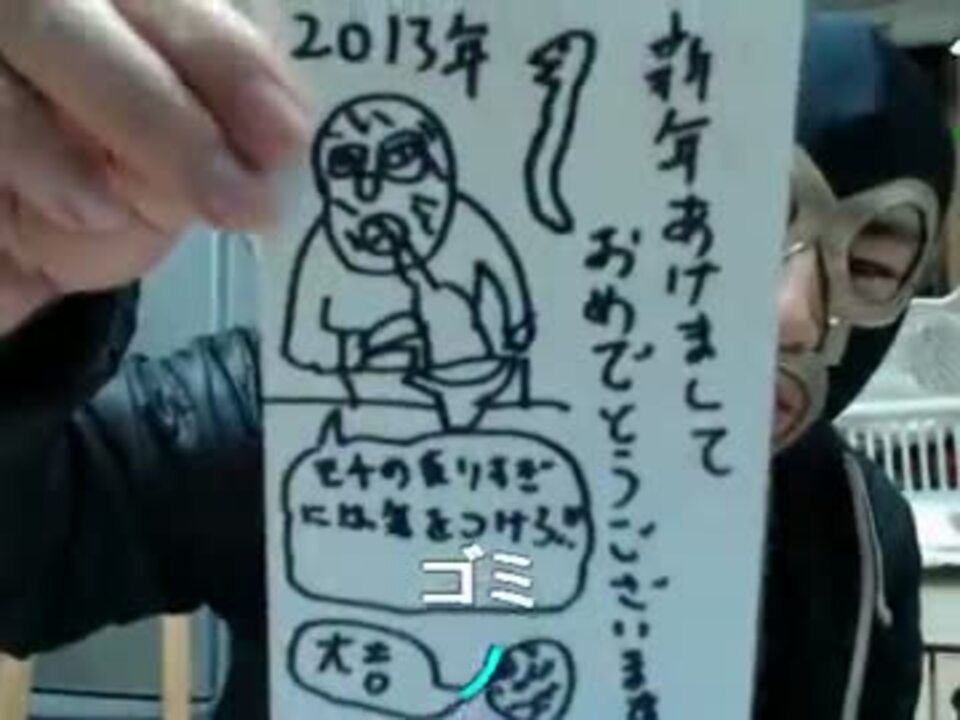 2013年
新年あけまして
おめでとうございます
モチの食りすぎ
には気をつけろ!!
ゴミ
ノ
大吉